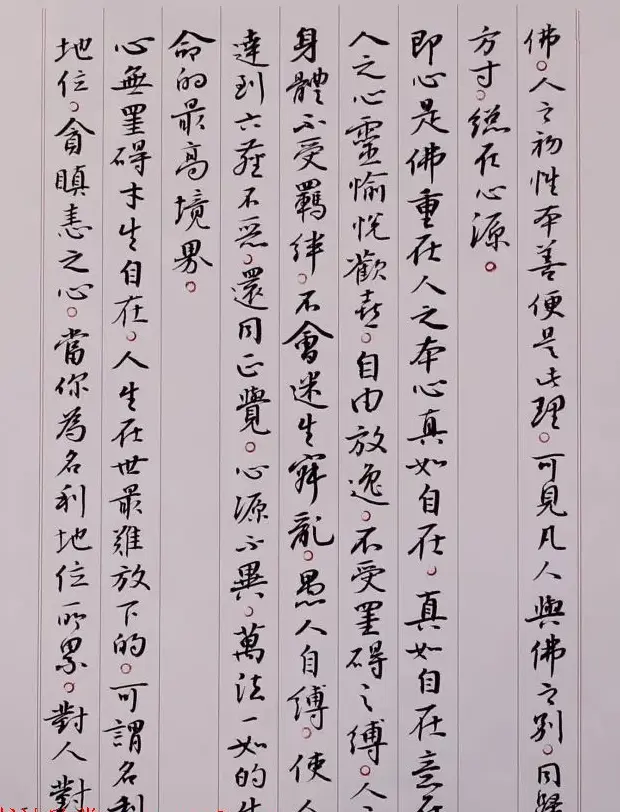 佛。人之初性本善便是此理。可見凡人與佛之別。同歸
方寸。總在心源。
即心是佛重在人之本心真如自在。真如自在意在
人之心靈愉悅歡喜。自由放逸。不受罣礙之縛。人之
身體不受羈絆。不會迷生寐亂。愚人自縛。使人
達到六塵不惡。還同正覺。心源不異。萬法一如的生
命的最高境界。
心無罣礙才生自在。人生在世最難放下的。可謂名利
地位。貪瞋恚之心。當你為名利地位所累。對人對